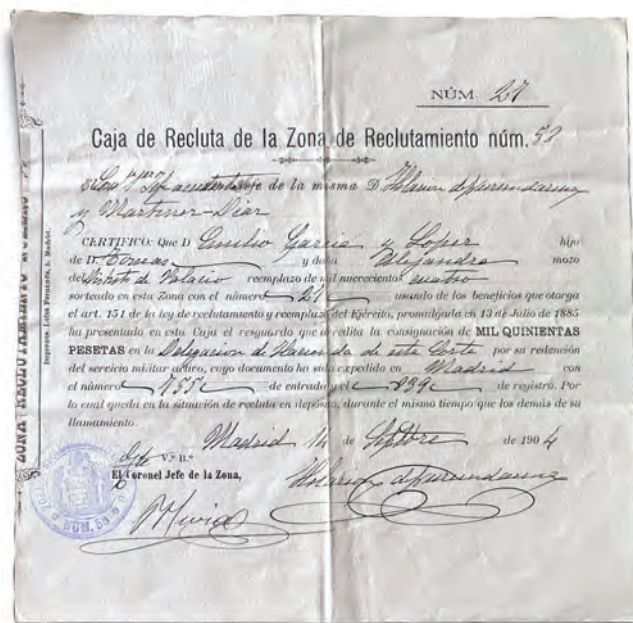 NÚM. 27
Caja de Recluta de la Zona de Reclutamiento núm. 58
Jefe de la misma D. Hilarion
y Martinez-Diaz
CERTIFICO: Que D Emilio Garcia y Lopez hijo
de D. Tomas y doña Alejandra mozo
del Distrito de Palacio reemplazo de mil novecientos cuatro
sorteado en esta Zona con el número 21 usando de los beneficios que otorga
el art. 151 de la ley de reclutamiento y reemplazo del Ejército, promulgada en 13 de Julio de 1885
ha presentado en esta Caja el resguardo que acredita la consignación de MIL QUINIENTAS
PESETAS en la Delegacion de Hacienda de esta Corte por su redención
del servicio militar activo, cuyo documento ha sido expedido en Madrid con
el número 755 de entrada y el 839 de registro. Por
lo cual queda en la situación de recluta en depósito, durante el mismo tiempo que los demás de su
llamamiento.
Madrid 14 de Septbre de 1904
V.º B.º
El Coronel Jefe de la Zona,
Hilarion
ZONA RECLUTAMIENTO NÚMERO